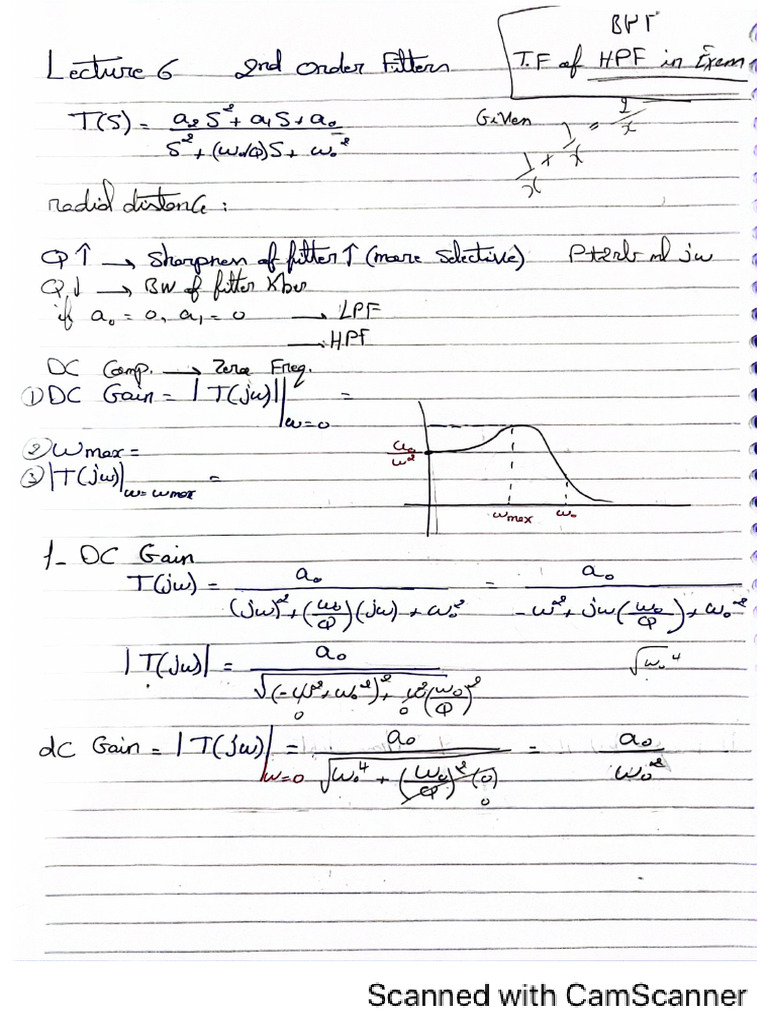 BPF
Lecture 6 2nd order Filters
T.F of HPF in Exam
T(S) = a₂S² + a₁S + a₀ / S² + (ω₀/Q)S + ω₀²
Given
1/x + 1/x = 2/x
radial distance :
Q ↑ → Sharpness of filter ↑ (more selective)
jω
Q ↓ → BW of filter
if a₀ = 0, a₁ = 0 → LPF
→ HPF
DC Comp. → Zero Freq.
① DC Gain = |T(jω)| |ω=0 =
② ωmax =
③ |T(jω)| ω=ωmax =
a₀/ω²
ωmax ω₀
1- DC Gain
T(jω) = a₀ / (jω)² + (ω₀/Q)(jω) + ω₀² = a₀ / -ω² + jω(ω₀/Q) + ω₀²
|T(jω)| = a₀ / √(-ω² + ω₀²)² + ω²(ω₀/Q)²
√ω₀⁴
0 0
dC Gain = |T(jω)| |ω=0 = a₀ / √ω₀⁴ + (ω₀/Q)²(0) = a₀ / ω₀²
0
Scanned with CamScanner